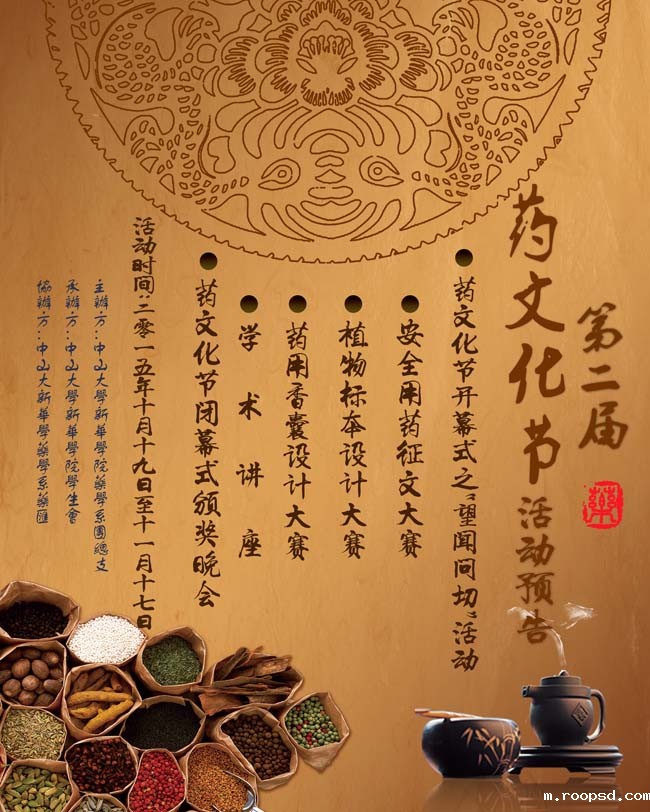 第二届
药文化节活动预告
藥
药文化节开幕式之“望闻问切”活动
安全用药征文大赛
植物标本设计大赛
药用香囊设计大赛
学术讲座
药文化节闭幕式颁奖晚会
活动时间:二零一五年十月十九日至十一月十七日
主辦方:中山大學新華學院藥學系團總支
承辦方:中山大學新華學院學生會
協辦方:中山大新華學藥學系藥匯
m.roopsd.com